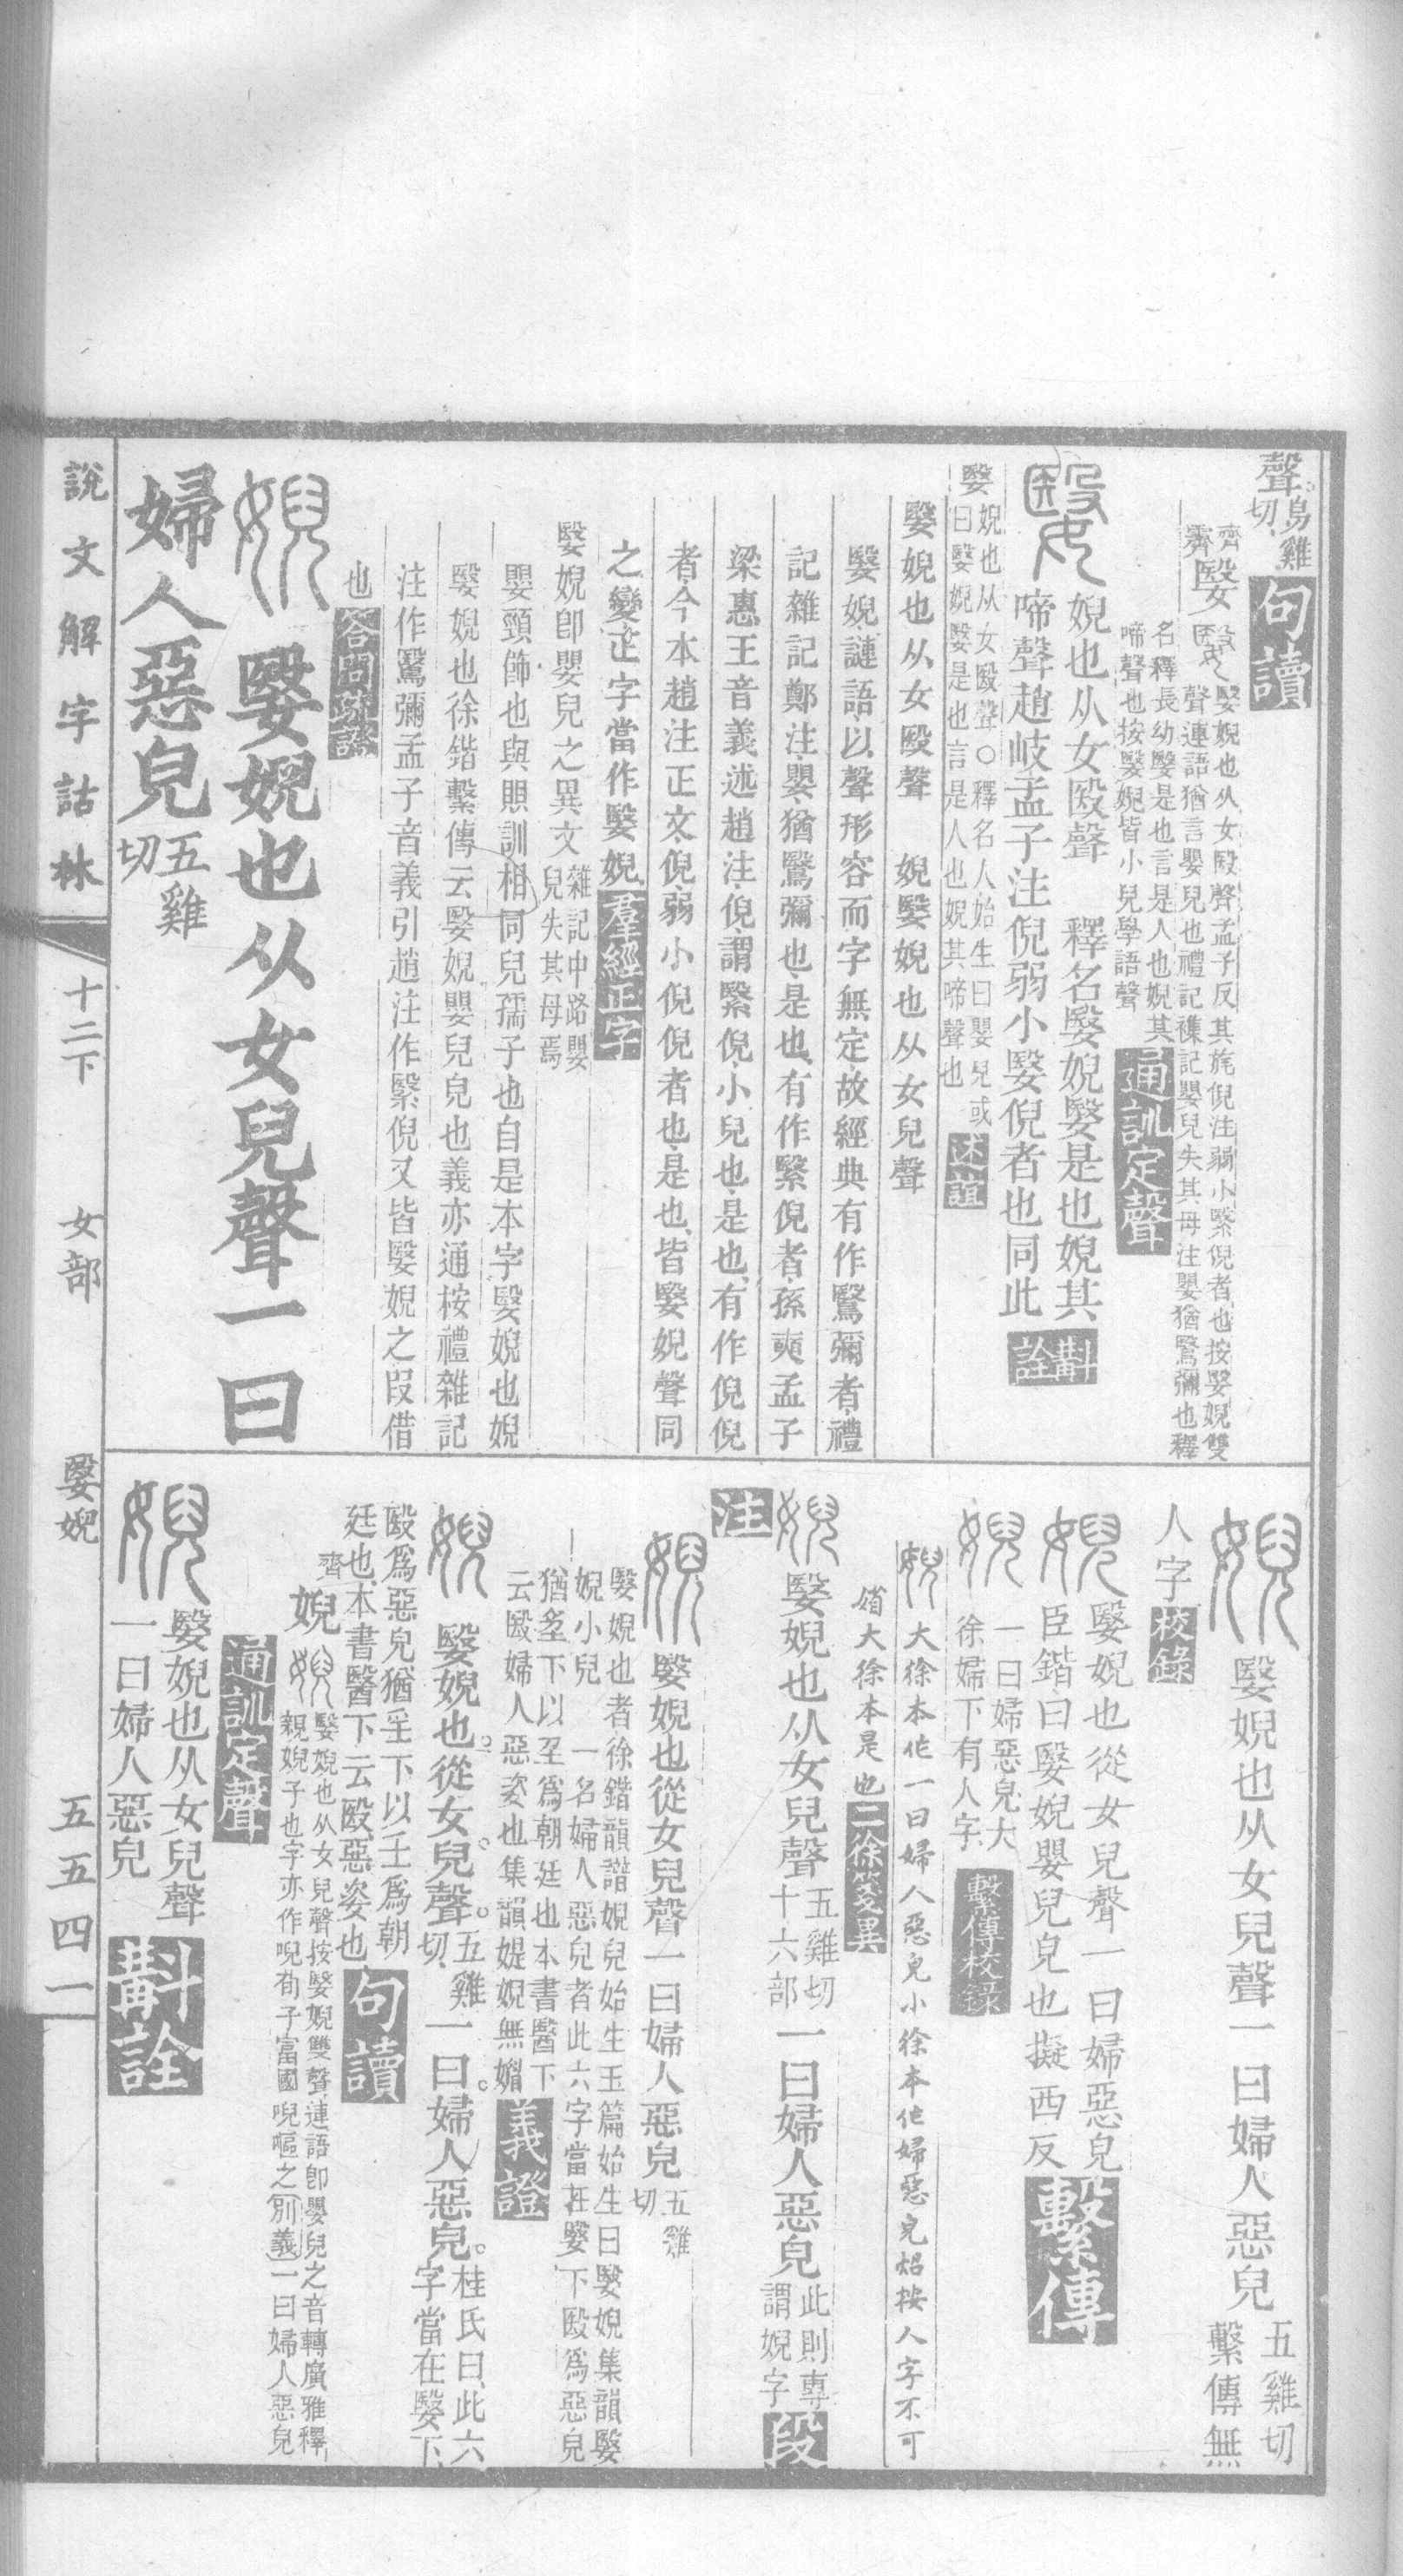 聲烏雞切句讀
齊𪗋嫛嫛婗也从女殹聲孟子反其旄倪注弱小繄倪者也按嫛婗雙
聲連語猶言嬰兒也禮記襍記嬰兒失其母注嬰猶鷖彌也釋
名釋長幼嫛是也言是人也婗其
啼聲也按嫛婗皆小兒學語聲通訓定聲
婗也从女殹聲　釋名嫛婗嫛是也婗其
啼聲趙岐孟子注倪弱小嫛倪者也同此斠詮
嫛婗也从女殹聲○釋名人始生曰嬰兒或
曰嫛婗嫛是也言是人也婗其啼聲也述誼
嫛婗也从女殹聲　婗嫛婗也从女兒聲
嫛婗謰語以聲形容而字無定故經典有作鷖彌者禮
記雜記鄭注嬰猶鷖彌也是也有作繄倪者孫奭孟子
梁惠王音義述趙注倪謂繄倪小兒也是也有作倪倪
者今本趙注正文倪弱小倪倪者也是也皆嫛婗聲同
之變正字當作嫛婗羣經正字
嫛婗卽嬰兒之異文雜記中路嬰兒失其母焉
嬰頸飾也與賏訓相同兒孺子也自是本字嫛婗也婗
嫛婗也徐鍇繫傳云嫛婗嬰兒皃也義亦通桉禮雜記
注作鷖彌孟子音義引趙注作繄倪又皆嫛婗之叚借
也答問疏證
嫛婗也从女兒聲一曰
婦人惡皃五雞切
說文解字詁林　十二下　女部　嫛婗　五五四一
嫛婗也从女兒聲一曰婦人惡皃五雞切繫傳無
人字校錄
嫛婗也從女兒聲一曰婦惡皃
臣鍇曰嫛婗嬰兒皃也擬西反繫傳
一曰婦惡皃大
徐婦下有人字繫傳校錄
大徐本作一曰婦人惡皃小徐本作婦惡皃炤按人字不可
省大徐本是也二徐箋異
嫛婗也从女兒聲五雞切十六部一曰婦人惡皃此則專謂婗字段
注
嫛婗也從女兒聲一曰婦人惡皃五雞切
嫛婗也者徐鍇韻譜婗兒始生玉篇始生曰嫛婗集韻嫛
婗小兒　一名婦人惡皃者此六字當在嫛下殹爲惡皃
猶坙下以巠爲朝廷也本書醫下
云殹婦人惡姿也集韻媞婗無媚義證
嫛婗也從女兒聲五雞切一曰婦人惡皃桂氏曰此六字當在嫛下
殹爲惡皃猶巠下以壬爲朝
廷也本書醫下云殹惡姿也句讀
齊婗嫛婗也从女兒聲按嫛婗雙聲連語卽嬰兒之音轉廣雅釋
親婗子也字亦作唲荀子富國唲嘔之別義一曰婦人惡皃
通訓定聲
嫛婗也从女兒聲
一曰婦人惡皃斠詮